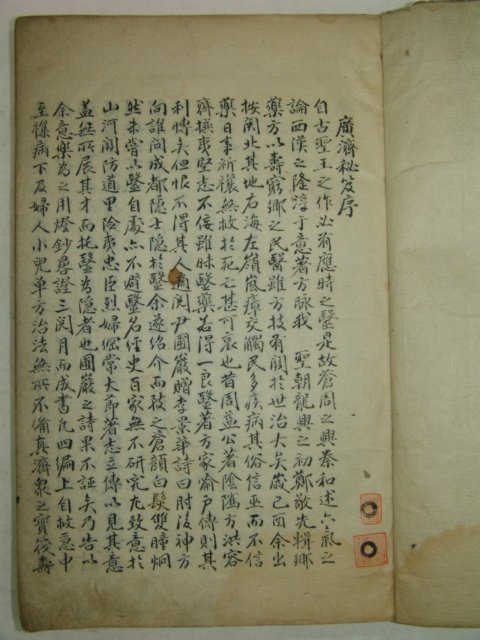 廣濟秘笈序
自古聖王之作必有應時之醫是故蒼周之興秦和述六氣之
論西漢之隆淳于意著方脉我 聖朝龍興之初鄭敬先輯鄕
藥方以壽窮鄕之民醫雖方技有關於世治大矣歲己酉余出
按関北其地右海左嶺嵐瘴交觸民多疾病其俗信巫而不信
藥日事祈禳無救於死亡甚可哀也昔周益公著陰隲方洪容
齊撰夷堅志不佞雖昧醫藥若得一良醫著方家喩戶傳則其
利愽矣但恨不得其人適関尹圃巖贈李景華詩曰肘後神方
向誰問成都隱士隱於醫余遂紹介而致之蒼顔白髮雙瞳炯
然未嘗以醫自處亦不避醫名經史百家無不硏究尤致意於
山河関防道里險夷忠臣烈婦倫常大節著志立傳以見其意
盖無所展其才而托醫爲隱者也圃巖之詩果不誣矣乃告以
余意樂爲之用燈鈔晷證三閱月而成書凡四編上自救急中
至雜病下及婦人小兒單方治法無所不備眞濟衆之寶筏壽